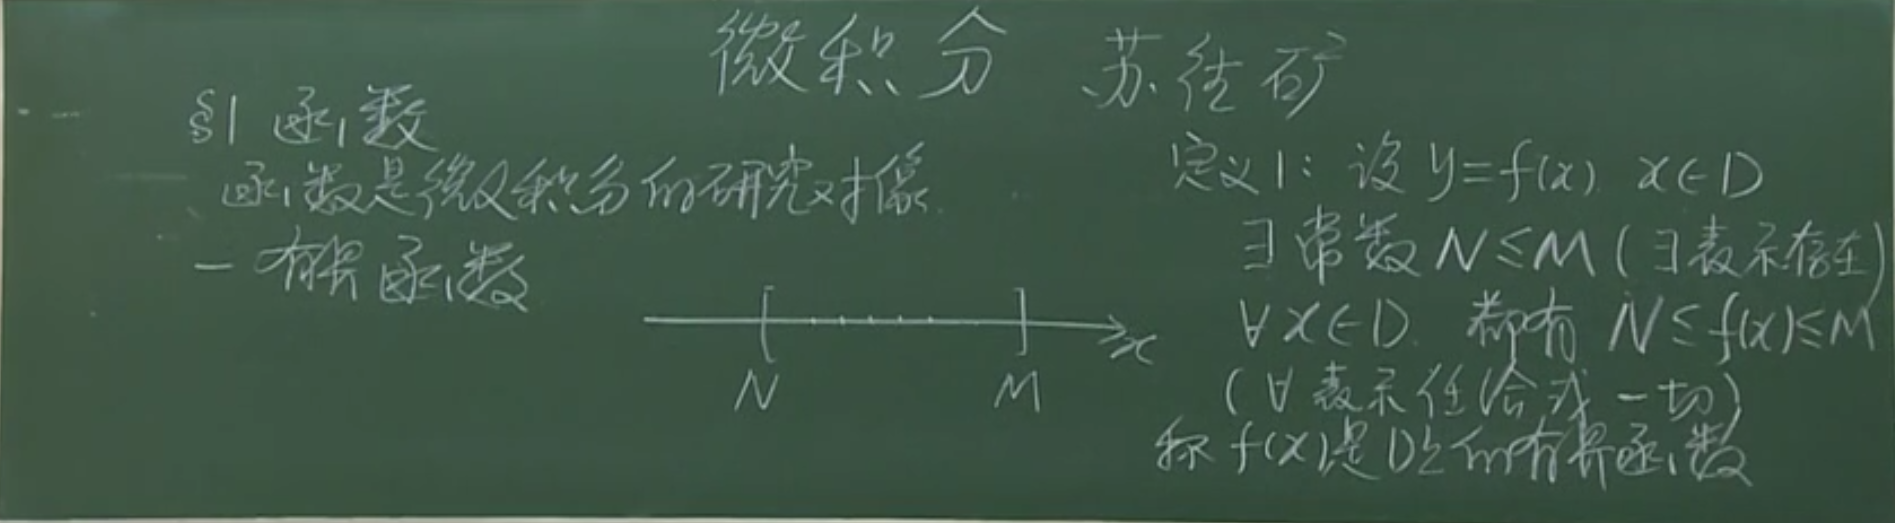 微积分 苏德矿
§1 函数
函数是微积分的研究对像
一 有界函数
N M x
定义1: 设 y=f(x) x∈D
∃常数 N≤M (∃表示存在)
∀x∈D. 都有 N≤f(x)≤M
(∀表示任给或一切)
称 f(x)是D上的有界函数